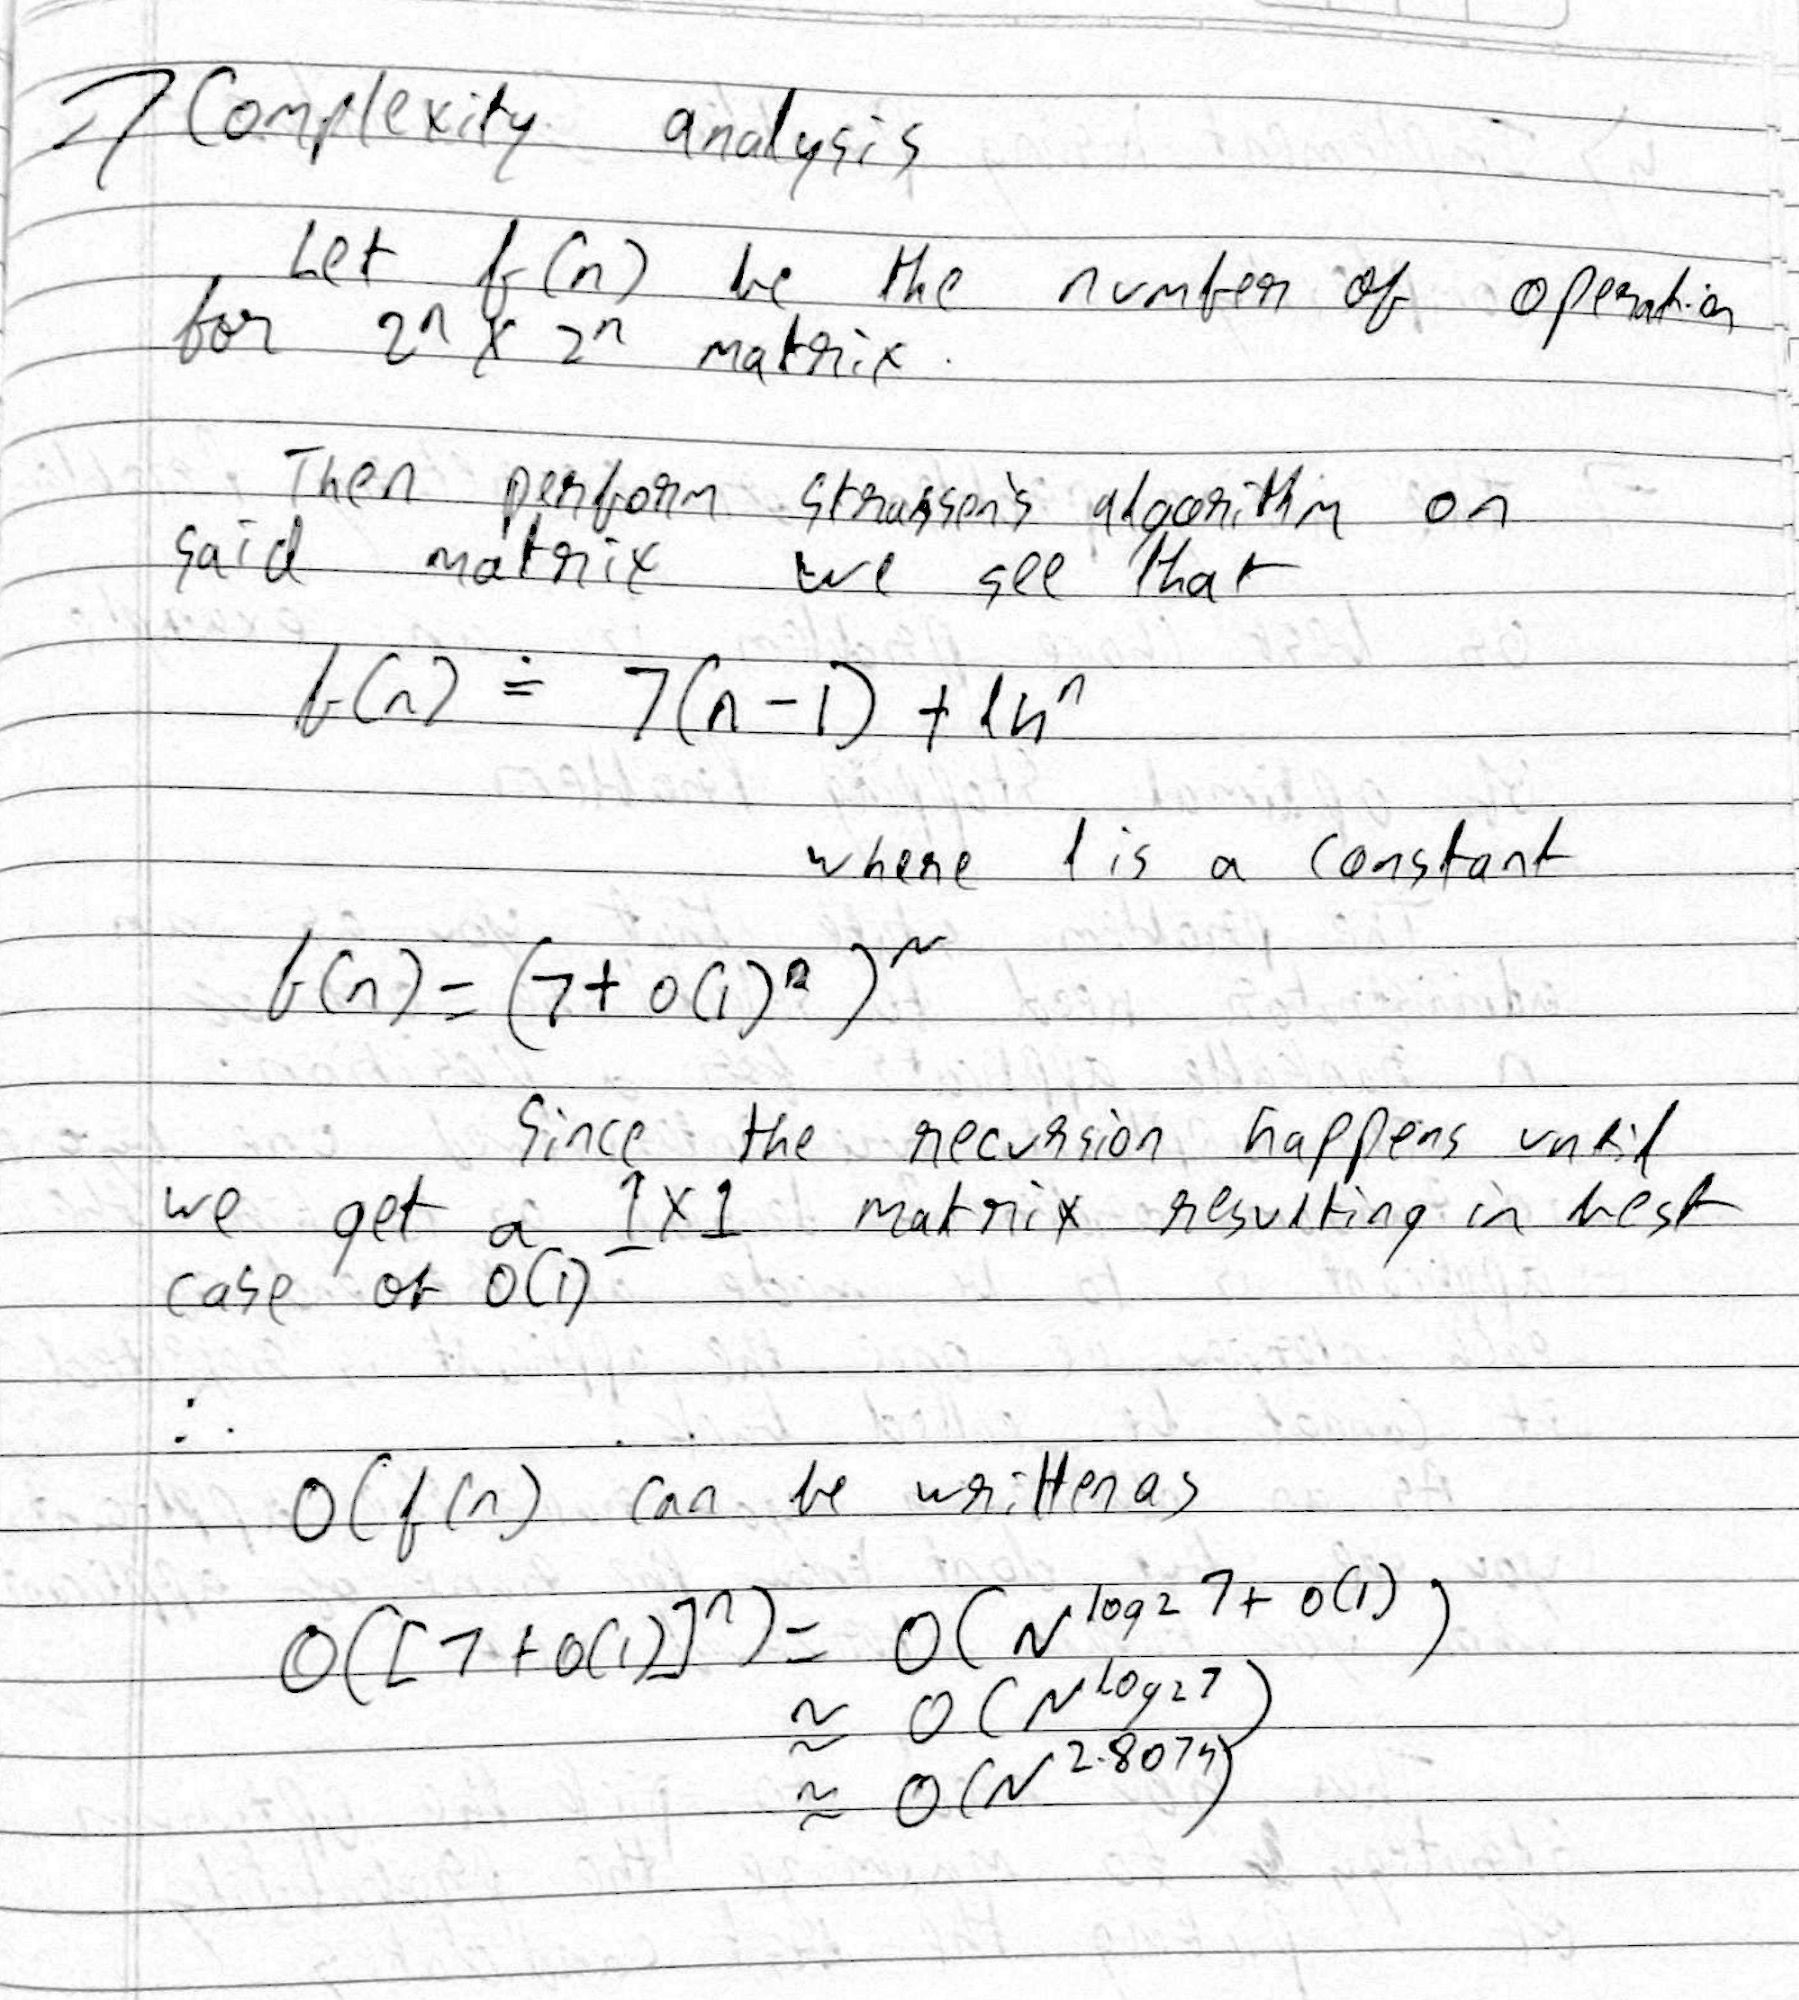 => Complexity analysis
Let f(n) be the number of operation
for 2ⁿ x 2ⁿ matrix.
Then perform strassen's algorithm on
said matrix we see that
f(n) = 7(n-1) + l4ⁿ
where l is a constant
f(n) = (7+ o(1) )ⁿ
Since the recursion happens until
we get a 1x1 matrix resulting in best
case of O(1)
∴
O(f(n) can be written as
O([7+o(1)]ⁿ) = O(N^log2 7+ o(1))
≈ O(N^log2 7)
≈ O(N^2.8074)